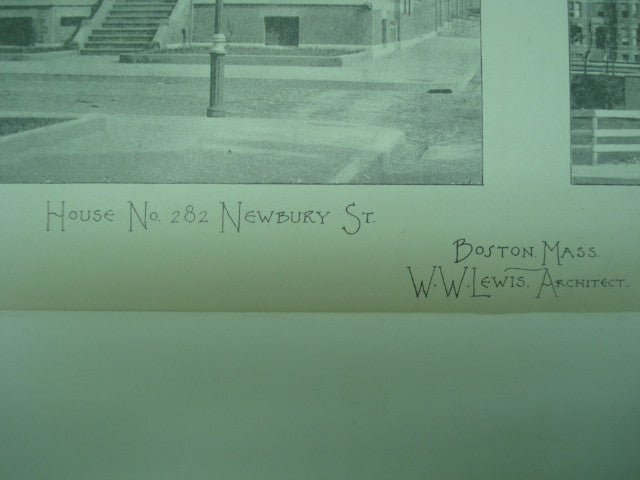 House No. 282 Newbury St.
Boston, Mass.
W. W. Lewis. Architect.